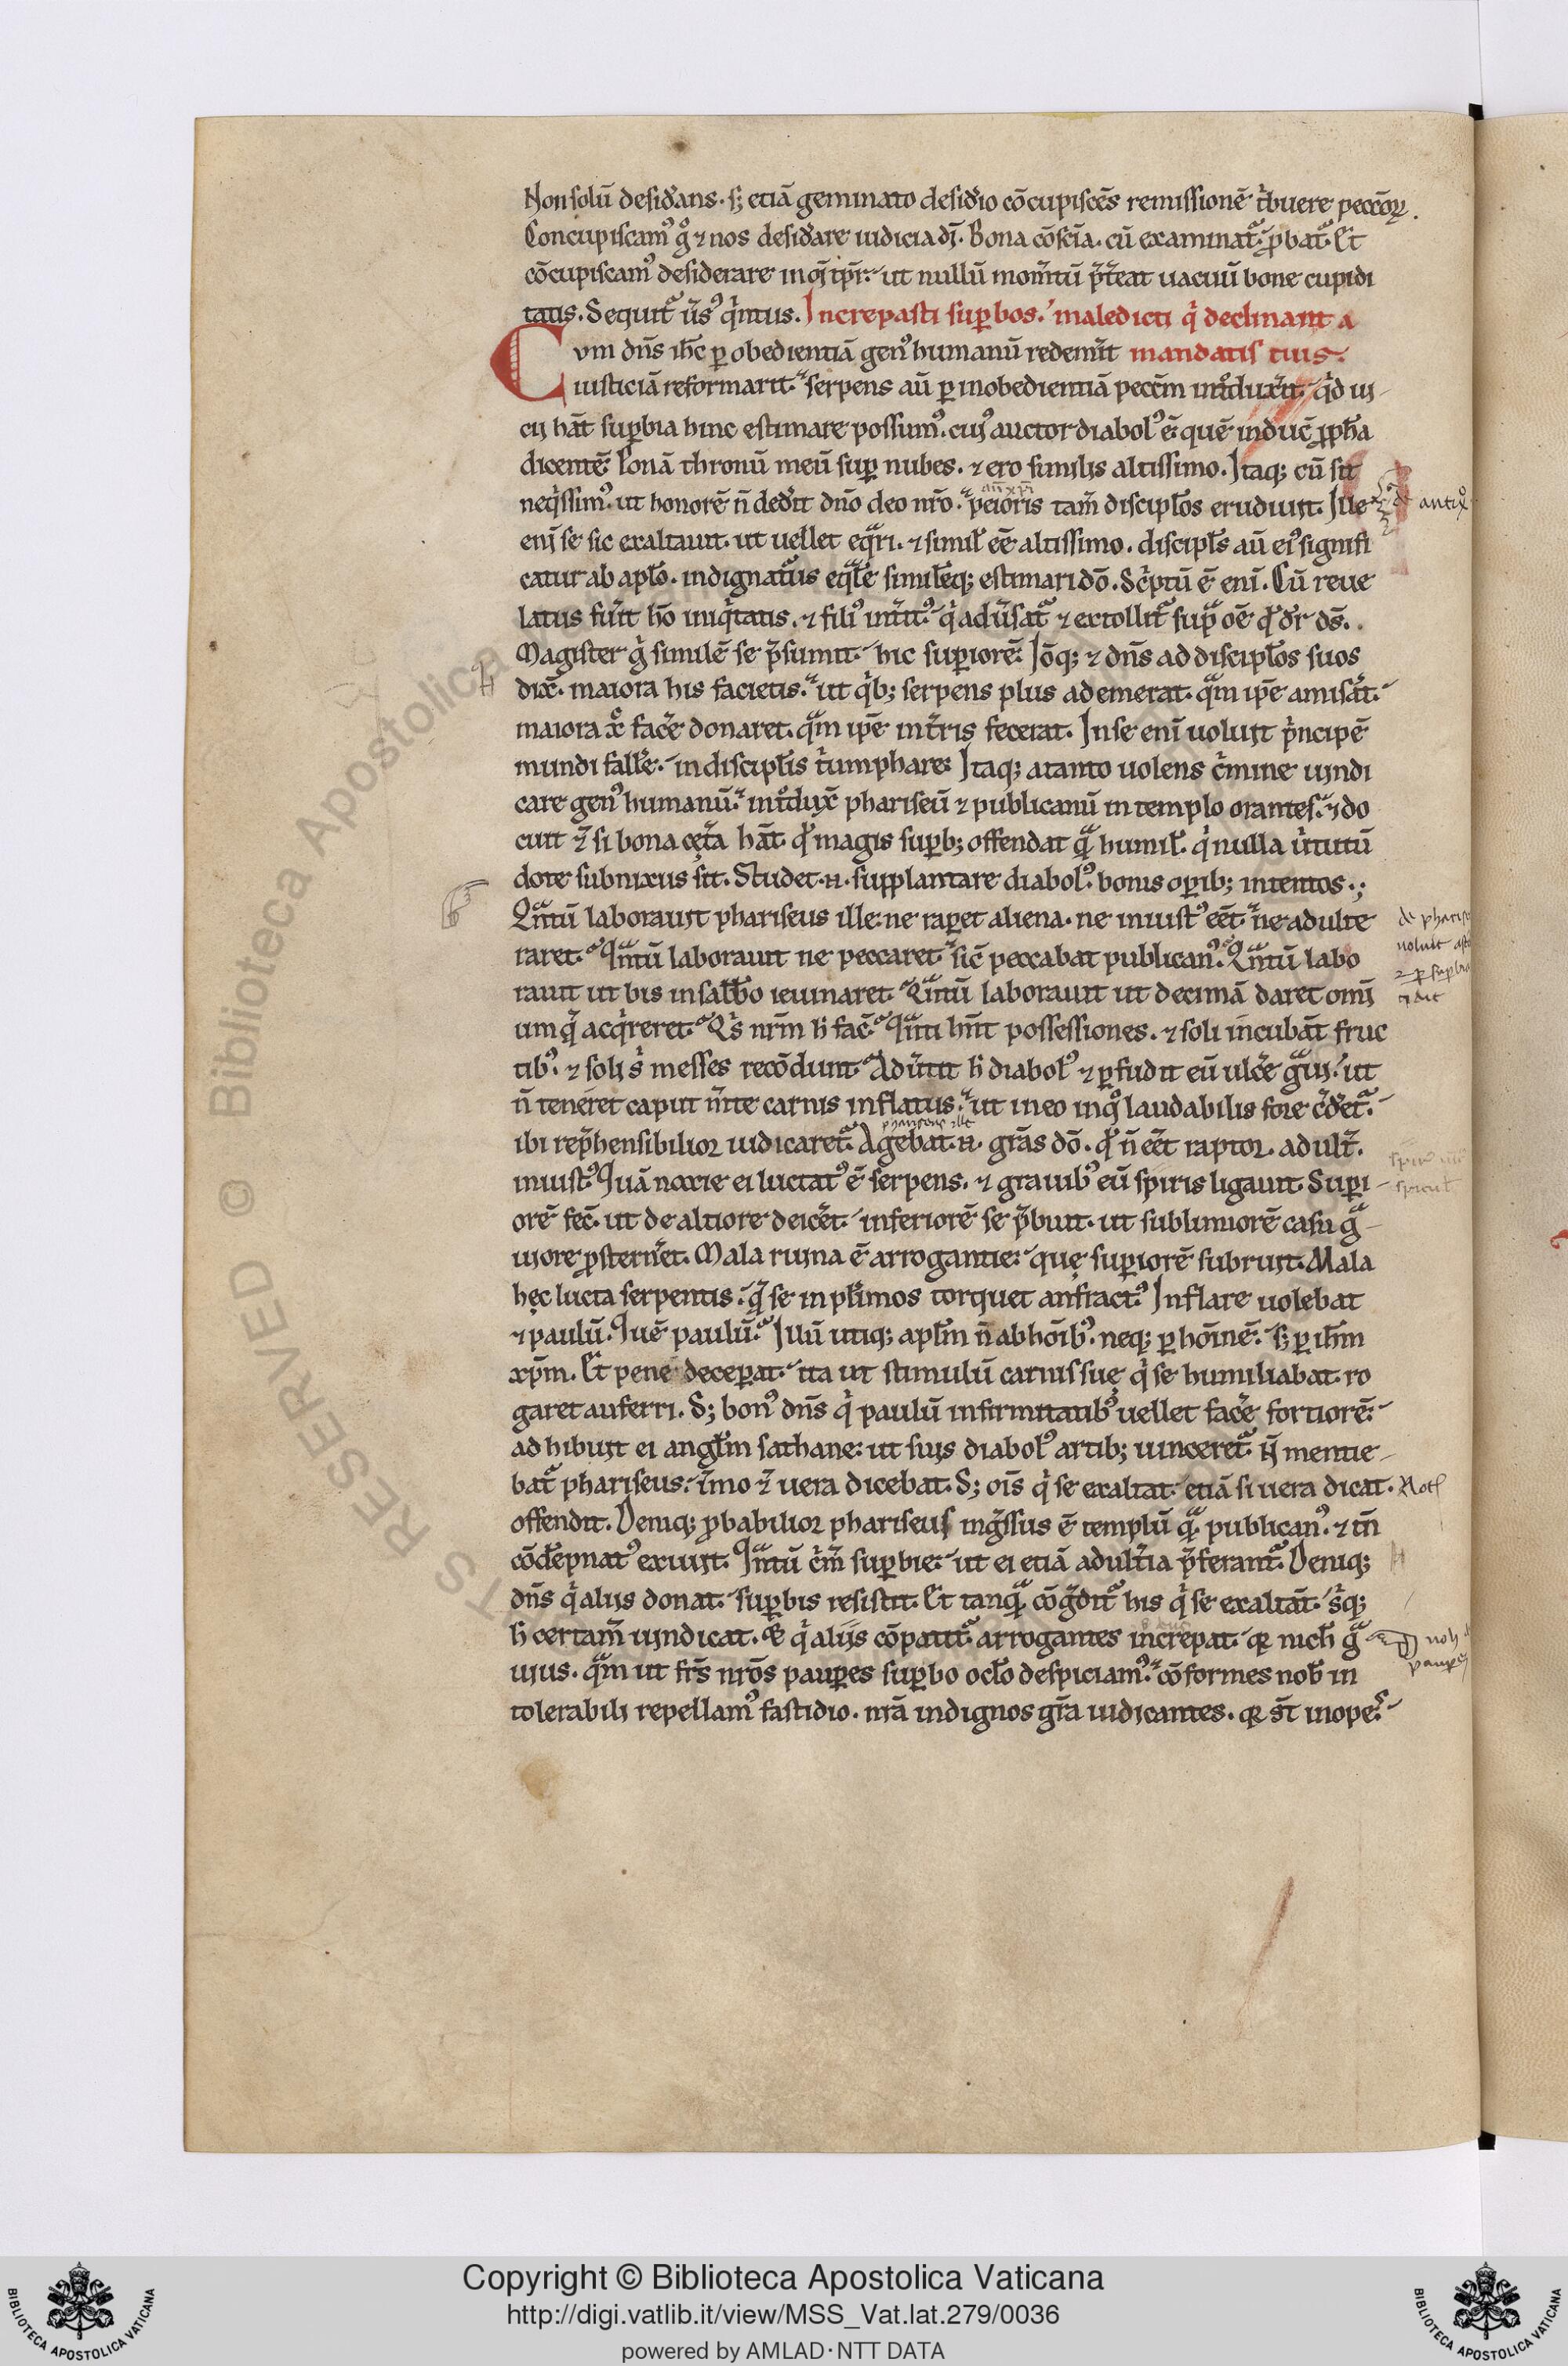 Non solū desid̾ans. s; etiā geminato desid̾io cōcupiscēs remissionē t̾buere peccōꝝ.
Concupiscam᷒ gͦ ⁊ nos desid̾are iudicia dī. Bona cōsc̄ia. cū examinat᷑. ꝓbat᷑. Et
cōcupiscam᷒ desiderare in oī tꝑr. ut nullū mom̄tū p̄t̾eat uacuū bone cupidi
tatis. Sequit᷑ ūs᷒ qͥntus. Increpasti suꝑbos. maledicti qͥ declinant a
Cvm dn̄s ih̄c ꝑ obedientiā gen᷒ humanū redem̾it mandatis tuis.
iusticiā reformarit. serpens aū ꝑ inobedientiā pecc̄m int͛dux̾it. qͥd ui
cij hāt suꝑbia hinc estimare possum᷒. cui᷒ auctor diabol᷒ ē. quē induc̄ ꝓph̄a
dicentē. Ponā thronū meū suꝑ nubes. ⁊ ero similis altissimo. Itaq; cū sit
neqͥssim᷒. ut honorē n̄ ded̾it dn̄o deo nr̄o. peioris tam̄ discipl̄os erudiuit. Ille
enī se sic exaltauit. ut uellet eqͣri. ⁊ simil̾ eē altissimo. discipl̄s aū ei᷒ signifi
catur ab apl̄o. indignat᷒us eqͣlē simil̄eq; estimari dō. Sc̾ptū ē enī. Cū reue
latus fu̾it hō iniqͥtatis. ⁊ fili᷒ int̾it᷒. qͥ adu̾sat᷑ ⁊ extollit᷑ supͣ om̄e qͦd dr̄ ds̄.
Magister gͦ similē se p̄sumit. hic suꝑiorē. Iōq; ⁊ dn̄s ad discipl̄os suos
dix̄. maiora his facietis. ut qͥb; serpens plus ademerat. qͣm ip̄e amis̾at.
maiora xͦ fac̾e donaret. qͣm ip̄e in t̾ris fecerat. In se enī uoluit pͥncipē
mundi fall̾e. in discipl̄is tͥumphare. Itaq; a tanto uolens cͥmine uindi
care gen᷒ humanū. int͛dux̄ phariseū ⁊ publicanū in templo orantes. ⁊ do
cuit ⁊̄ si bona cęt̾a hāt. qͦd magis suꝑb; offendat qͣ humil̾. qͥ nulla u̾tutū
dote subnixus sit. Studet .n̄. supplantare diabol᷒. bonis oꝑib; intentos.;
Qͣntū laborauit phariseus ille. ne raꝑet aliena. ne iniust᷒ eēt. ne adulte
raret. Qͣntū laborauit ne peccaret. sic̄ peccabat publican᷒. Qͣntū labo
rauit ut bis in sabb̄o ieiunaret. Qͣntū laborauit ut decimā daret omī
um q̄ acqͥreret. Qͥs nr̄m h̄ fac̄. Qͣnti hn̄t possessiones. ⁊ soli incubāt fruc
tib᷒. ⁊ soli sͥ messes recōdunt. Adu̾tit h̄ diabol᷒ ⁊ ꝑfudit eū ulc̾e gͣui. ut
n̄ teneret caput m̄te carnis inflatus. ut in eo in qͦ laudabilis fore c̾d̾et᷑.
phariseus ille
ibi rep̄hensibilior iudicaret᷑. Agebat .n̄. gr̄as dō. qͦd n̄ eēt raptor. adult̾.
iniust᷒. Quā noxie ei luctat᷒ ē serpens. ⁊ grauib᷒ eū spiris ligauit. Suꝑi
orē fec̄. ut de altiore deic̾et. inferiorē se p̄buit. ut sublimiorē casu gͣ
uiore ꝓstern̾et. Mala ruina ē arrogantie. quę suꝑiorē subruit. Mala
hęc lucta serpentis. q̄ se in pl̾imos torquet anfract᷒. Inflare uolebat
⁊ paulū. Quē paulū. Illū utiq; apl̄m n̄ ab hoīb᷒. neq; ꝑ hoīnē. s; ꝑ ih̄m
xp̄m. Et pene deceꝑat. ita ut stimulū carnis suę qͥ se humiliabat. ro
garet auferri. S; bon᷒ dn̄s qͥ paulū infirmitatib᷒ uellet fac̾e fortiorē.
adhibuit ei angl̄m sathane. ut suis diabol᷒ artib; uinceret᷑. N̄ mentie
bat᷑ phariseus. īmo ⁊̄ uera dicebat. S; oīs qͥ se exaltat. etiā si uera dicat.
offendit. Deniq; ꝓbabilior phariseus ingͣssus ē templū qͣ publican᷒. ⁊ tn̄
cōdēpnat᷒ exiuit. Qͣntū c̾m̄ suꝑbie. ut ei etiā adult̾ia p̄ferant᷑. Deniq;
dn̄s qͥ alijs donat. suꝑbis resistit. Et tanqͣ cōgͣdit᷑ his qͥ se exaltāt. sͥq;
h̄ certam̄ uindicat. Et qͥ aliis cōpatit᷑. arrogantes increpat. qͥ nich̾ gͣ
uius. qͣm ut fr̄s nr̄os pauꝑes suꝑbo ocl̄o despiciam᷒. cōformes nob̾ in
tolerabili repellam᷒ fastidio. nr̄a indignos gr̄a iudicantes. qͥ st̄ inope᷒.
Not
Copyright © Biblioteca Apostolica Vaticana
http://digi.vatlib.it/view/MSS_Vat.lat.279/0036
powered by AMLAD·NTT DATA
BIBLIOTECA APOSTOLICA VATICANA
BIBLIOTECA APOSTOLICA VATICANA